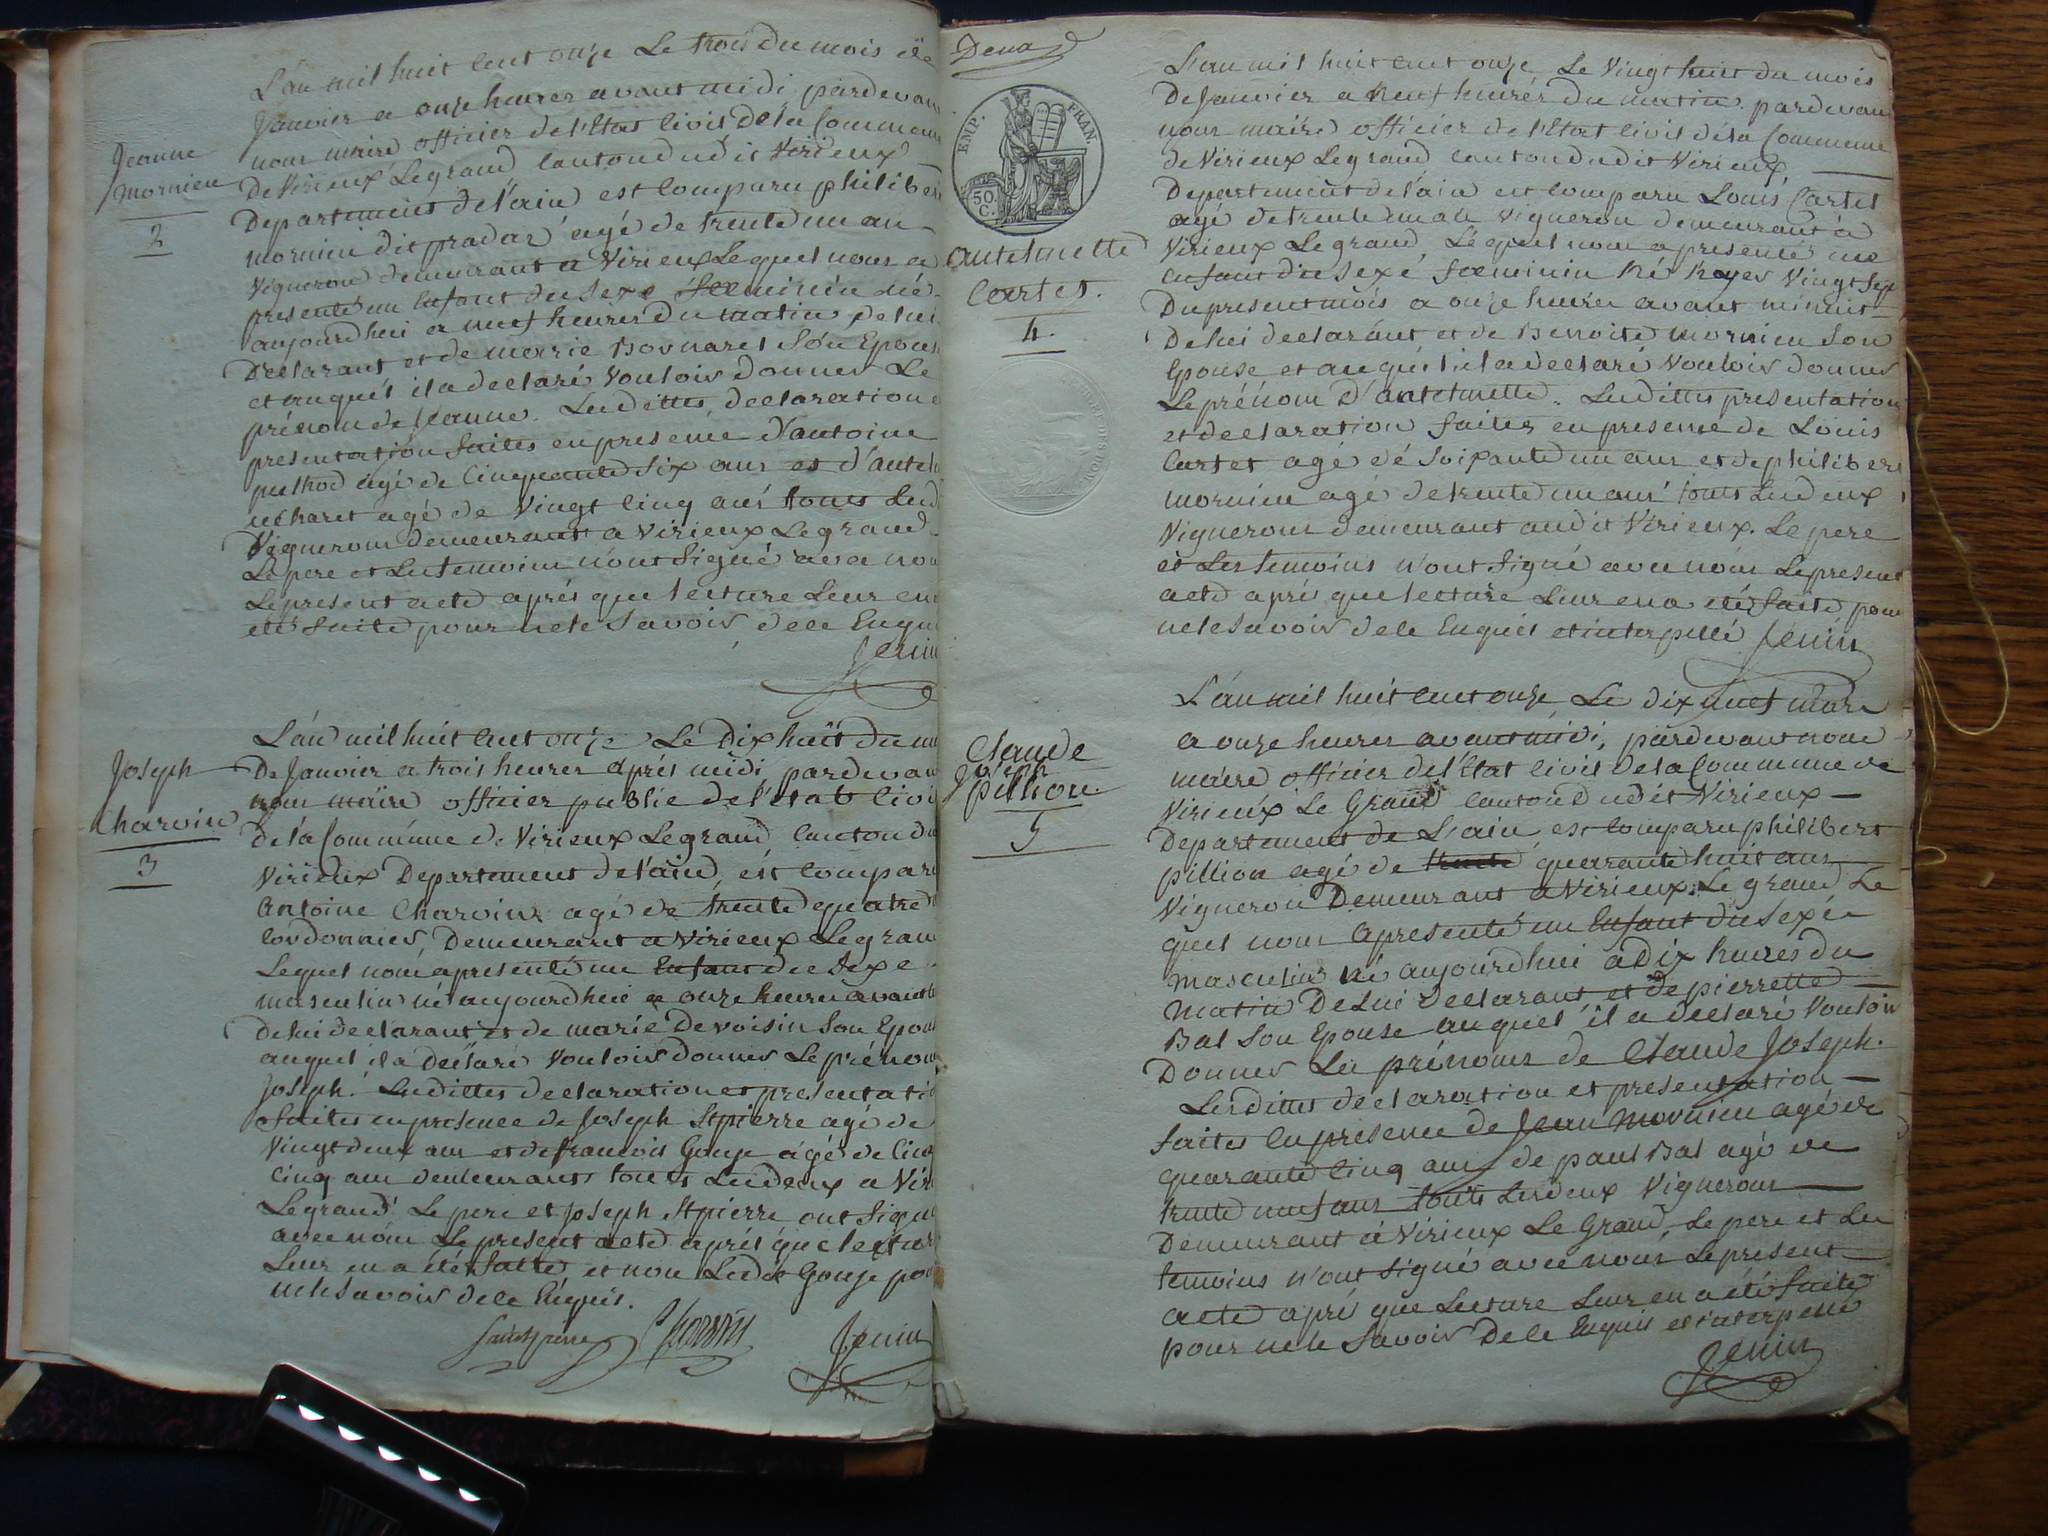 L'an mil huit cent onze Le trois du mois de
Janvier a onze heures avant midi pardevan
nous maire officier de l'Etat civil de la Commune
De Virieux Legrand Canton dudit Virieux
Departement de l'ain est Comparu philiber
mornieu dit pradar agé de trente un an
Vigneron demeurant a Virieux Lequel nous a
presenté un Enfant du Sexe feminin né
aujourdhui a neuf heures du matin de lui
Declarant et de marie Bovnard Son Epouse
et auquel il a declaré Vouloir donner Le
prénom de Jeanne. Lesdittes declaration
presentation faites en presence d'antoine
agé de Cinquante Six ans et d'antel
agé de Vingt Cinq ans tous Les d
Vignerons demeurant a Virieux Legrand
Le pere et Les temoins n'ont Signé avec nou
Le present acte aprés que lecture Leur en
eté faite pour ne le Savoir de ce Enqui
Jenin
Jeanne
mornieu
2
L'an mil huit cent onze Le Dix huit du m
De Janvier a trois heures aprés midi pardevan
nous maire officier public de l'état Civi
de la Commune de Virieux Legrand, Canton du
Virieux Departement de l'ain, est Compar
Antoine Charvin agé de trente quatre
Cordonnier, Demeurant a Virieux Legran
Lequel nous a presenté un Enfant du Sexe
masculin né aujourdhui a onze heures avant
de lui declarant et de marie Devoisin Son Epou
auquel il a Déclaré Vouloir donner Le prénom
Joseph. Lesdittes declaration et presentati
faites en presence de Joseph Stpierre agé de
Vingt deux ans et de francois Gouje agé de Cinq
Cinq ans demeurants tous Les deux a Vir
Legrand. Le pere et Joseph Stpierre ont Signé
avec nous Le present acte aprés que lectur
Leur en a été faite et non Ledit Gouje pou
ne le Savoir de ce Enquis.
Saintpierre Charvin Jenin
Joseph
Charvin
3
Deux
EMP. FRAN.
50. C.
antelmette
Cartet.
4.
L'an mil huit cent onze Le Vingt huit du mois
De Janvier a Neuf heures du matin pardevan
nous maire officier de l'Etat Civil de la Commune
de Virieux Legrand Canton dudit Virieux
Departement de l'ain est Comparu Louis Cartet
agé de trente un an Vigneron demeurant a
Virieux Legrand Lequel nous a presenté une
Enfant du Sexe foeminin Né hyer Vingt Sep
Du present mois a onze heures avant minuit
De lui declarant et de Benoite mornieu Son
Epouse et auquel il a declaré Vouloir donner
Le prénom D'antelmette. Lesdittes presentation
et declaration faites en presence de Louis
Cartet agé de Soixante un ans et de philiber
mornieu agé de trente un ans tous Les deux
Vignerons demeurant audit Virieux. Le pere
et Les temoins n'ont Signé avec nous Le present
acte aprés que lecture Leur en a eté faite pour
ne le Savoir de ce Enquis et interpellé Jenin
Claude
Joseph
pillion.
5
L'an mil huit cent onze Le dix neuf mars
a onze heures avant midi, pardevant nous
maire officier de l'Etat Civil de la Commune de
Virieux Le Grand Canton dudit Virieux
Departement de L'ain est Comparu philibert
pillion agé de trente quarante huit ans
Vigneron Demeurant a Virieux Le grand Le
quel nous a presenté un Enfant du Sexe
masculin Né aujourdhui a Dix heures du
matin De Lui Declarant et de pierrette
Bal Son Epouse auquel il a déclaré Vouloir
Donner Les prénoms de Claude Joseph.
Lesdittes declaration et presentation
faites En presence de Jean Mornieu agé de
quarante Cinq ans de paul Bal agé de
trente neuf ans tous Les deux Vignerons
Demeurant a Virieux Le Grand, Le pere et Les
temoins n'ont Signé avec nous Le present
acte aprés que Lecture Leur en a été faite
pour ne le Savoir De ce Enquis et interpellé
Jenin